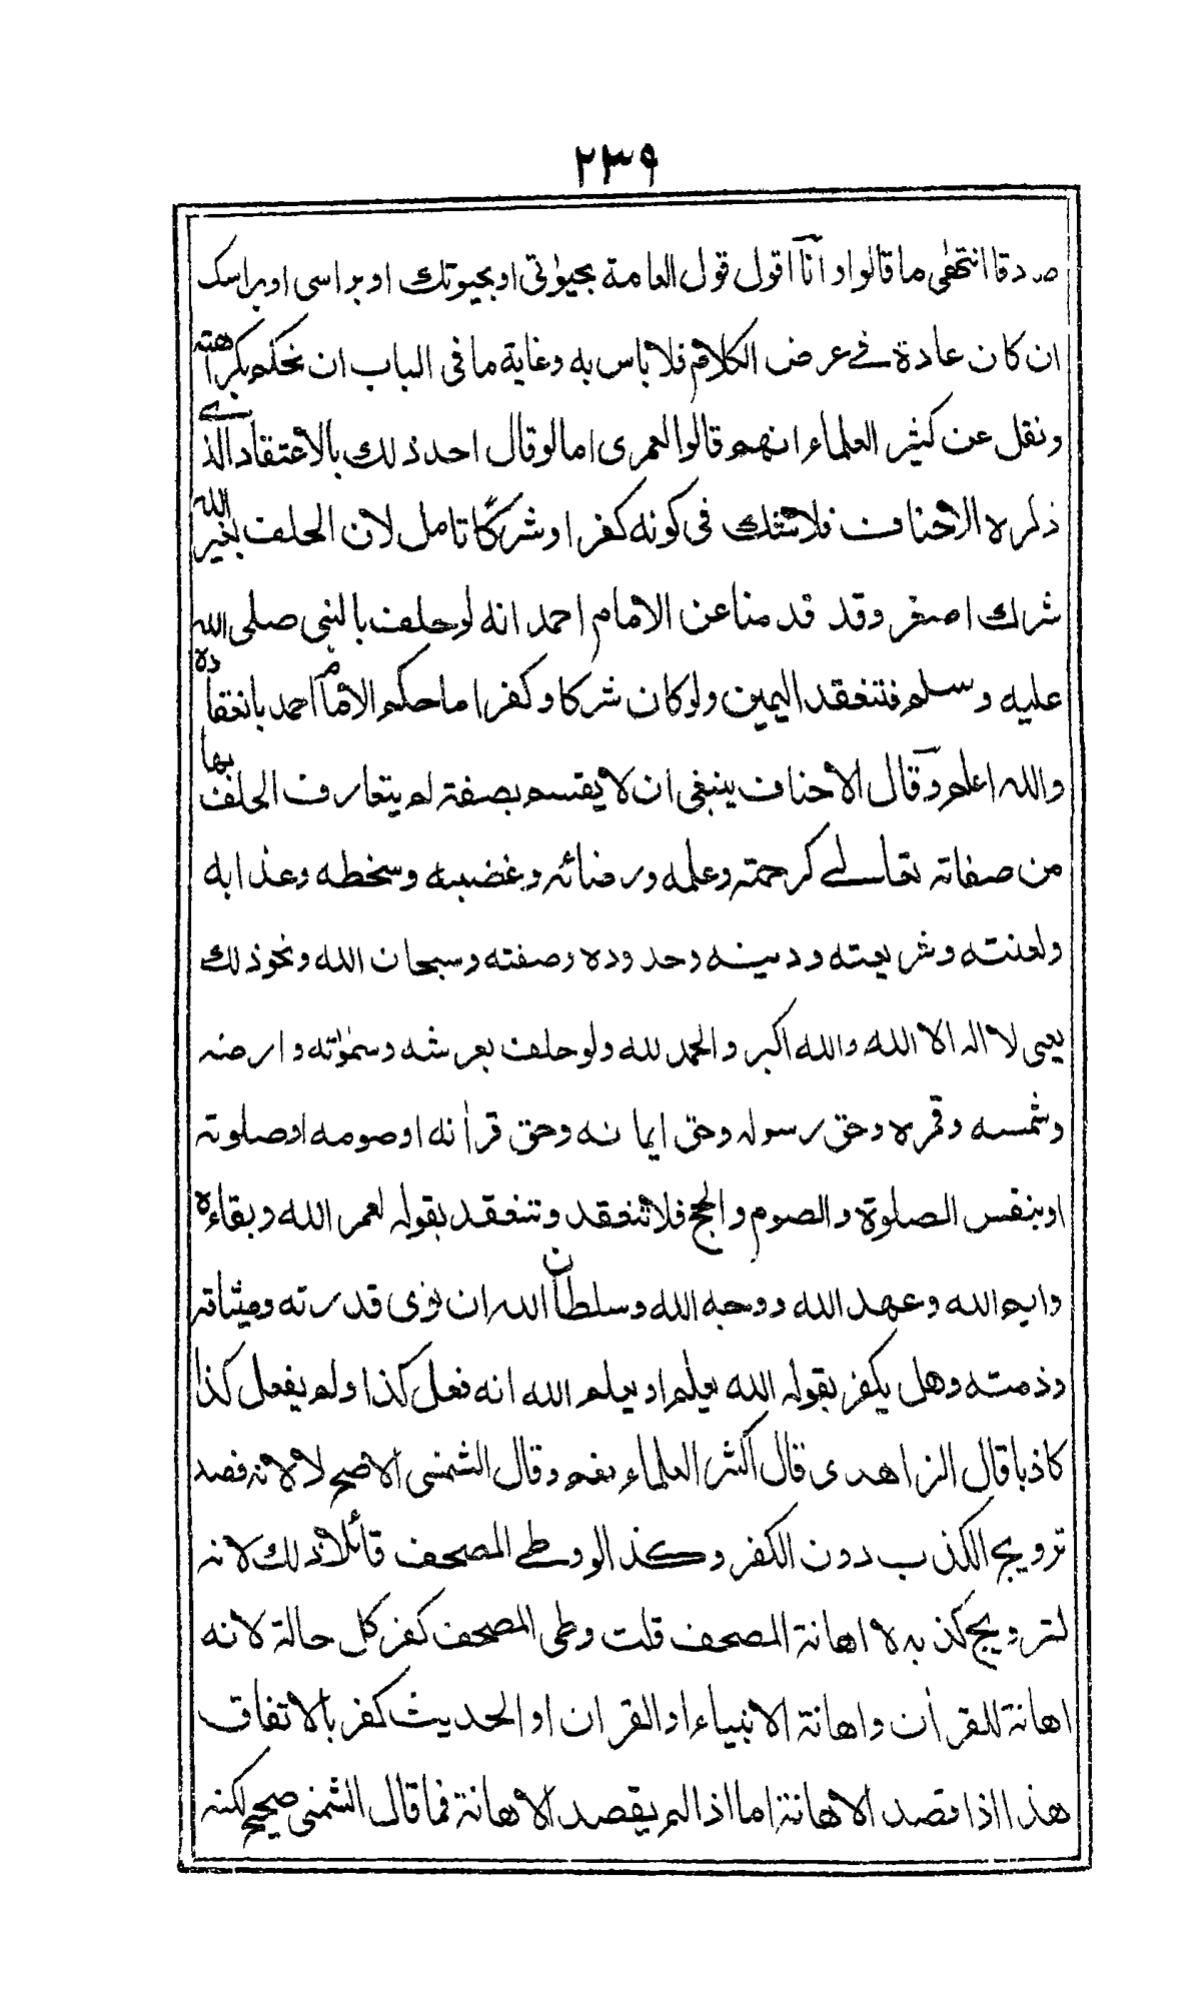 ٢٣٩
صدقا انتهٰى ما قالوا و اَنَا اقول قول العامة بحيوٰتى او بحيوتك او براسى او براسك
ان كان عادة فے عرض الكلام فلا باس به وغاية ما فى الباب ان نحكم بكراهته
ونقل عن كثير العلماء انهم قالوا لعمرى اما لو قال احد ذلك بالاعتقاد الذے
ذكره الاحناف فلا شك فى كونه كفرا و شركًا تامل لان الحلف بغير الله
شرك اصغر وقد قدمنا عن الامام احمد انه لو حلف بالنبى صلى الله
عليه وسلم فتنعقد اليمين ولو كان شركا وكفرا ما حكم الامام احمد بانعقاده
والله اعلم وقال الاحناف ينبغى ان لا يقسم بصفة لم يتعارف الحلف بها
من صفاته تعالے كرحمته وعلمه ورضائه وغضبه وسخطه وعذابه
ولعنته وشريعته ودينه وحدوده وصفته وسبحان الله ونحو ذلك
يعنى لا اله الا الله والله اكبر والحمد لله ولو حلف بعرشه وسمٰوٰته وارضه
وشمسه وقمره وحق رسوله وحق ايمانه وحق قراٰنه او صومه او صلوته
او بنفس الصلوة والصوم والحج فلا تنعقد وتنعقد بقوله لعمر الله وبقاءه
وايم الله وعهد الله ووجه الله وسلطان الله ان نوى قدرته وميثاقه
وذمته وهل يكفر بقوله الله يعلم او يعلم الله انه فعل كذا ولم يفعل كذا
كاذبا قال الزاهدى قال اكثر العلماء نعم وقال الشمنى الاصح لا لانه قصد
ترويج الكذب دون الكفر وكذا لو وطے المصحف قائلا ذلك لانه
لترويج كذبه لا اهانة المصحف قلت وطى المصحف كفر كل حالة لانه
اهانة للقراٰن واهانة الانبياء او القران او الحديث كفر بالاتفاق
هذا اذا قصد الاهانة اما اذا لم يقصد الاهانة فما قال الشمنى صحيح لكنه